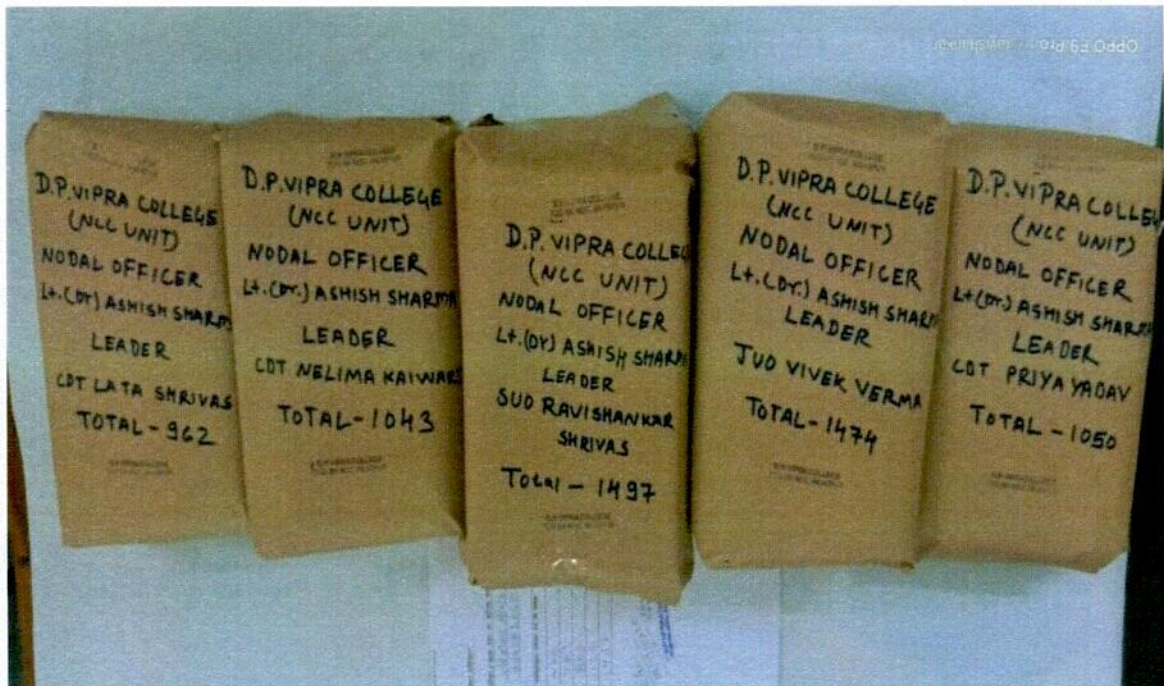 D.P. VIPRA COLLEGE
(NCC UNIT)
NODAL OFFICER
Lt.(Dr) ASHISH SHARMA
LEADER
CDT LATA SHRIVAS
TOTAL - 962
D.P. VIPRA COLLEGE
(NCC UNIT)
NODAL OFFICER
Lt.(Dr.) ASHISH SHARMA
LEADER
CDT NELIMA KAIWART
TOTAL - 1043
D.P. VIPRA COLLEGE
(NCC UNIT)
NODAL OFFICER
Lt.(Dr) ASHISH SHARMA
LEADER
SUO RAVISHANKAR
SHRIVAS
Total - 1497
D.P. VIPRA COLLEGE
(NCC UNIT)
NODAL OFFICER
Lt.(Dr.) ASHISH SHARMA
LEADER
JUO VIVEK VERMA
TOTAL - 1474
D.P. VIPRA COLLEGE
(NCC UNIT)
NODAL OFFICER
Lt.(Dr) ASHISH SHARMA
LEADER
CDT PRIYA YADAV
TOTAL - 1050
OPPO F9 Pro